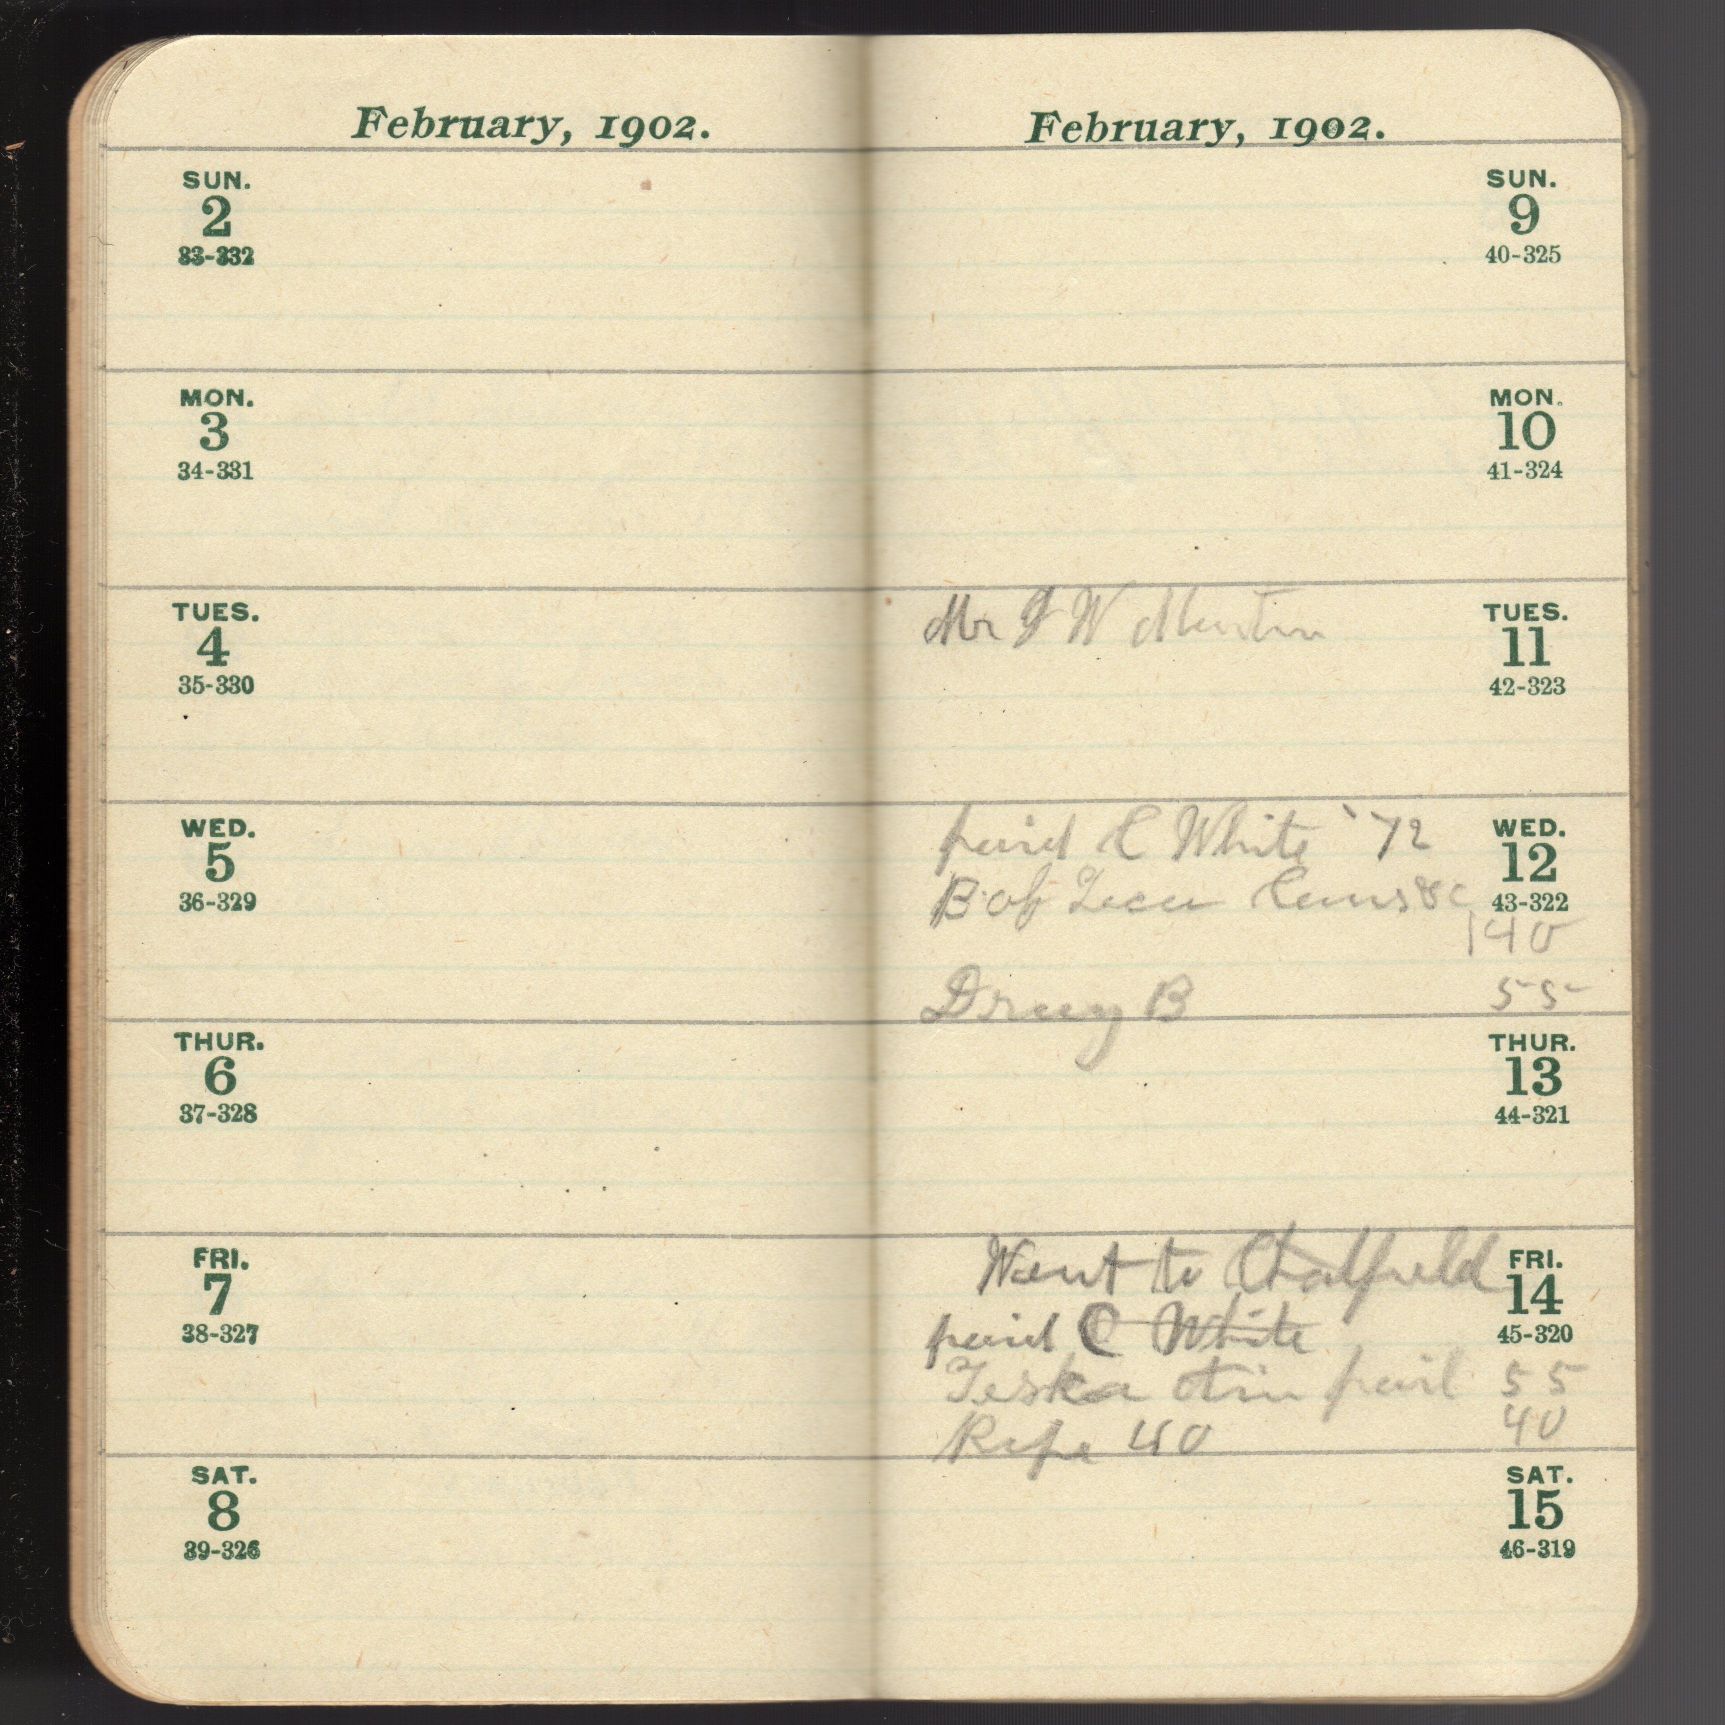 February, 1902.
SUN.
2
33-332
MON.
3
34-331
TUES.
4
35-330
WED.
5
36-329
THUR.
6
37-328
FRI.
7
38-327
SAT.
8
39-326
February, 1902.
SUN.
9
40-325
MON.
10
41-324
TUES.
11
42-323
Mr W
WED.
12
43-322
paid C White 72
Bob
140
Drug B 55
THUR.
13
44-321
FRI.
14
45-320
Went to Chatfield
paid C White
Teska pail 55
40
Rope 40
SAT.
15
46-319